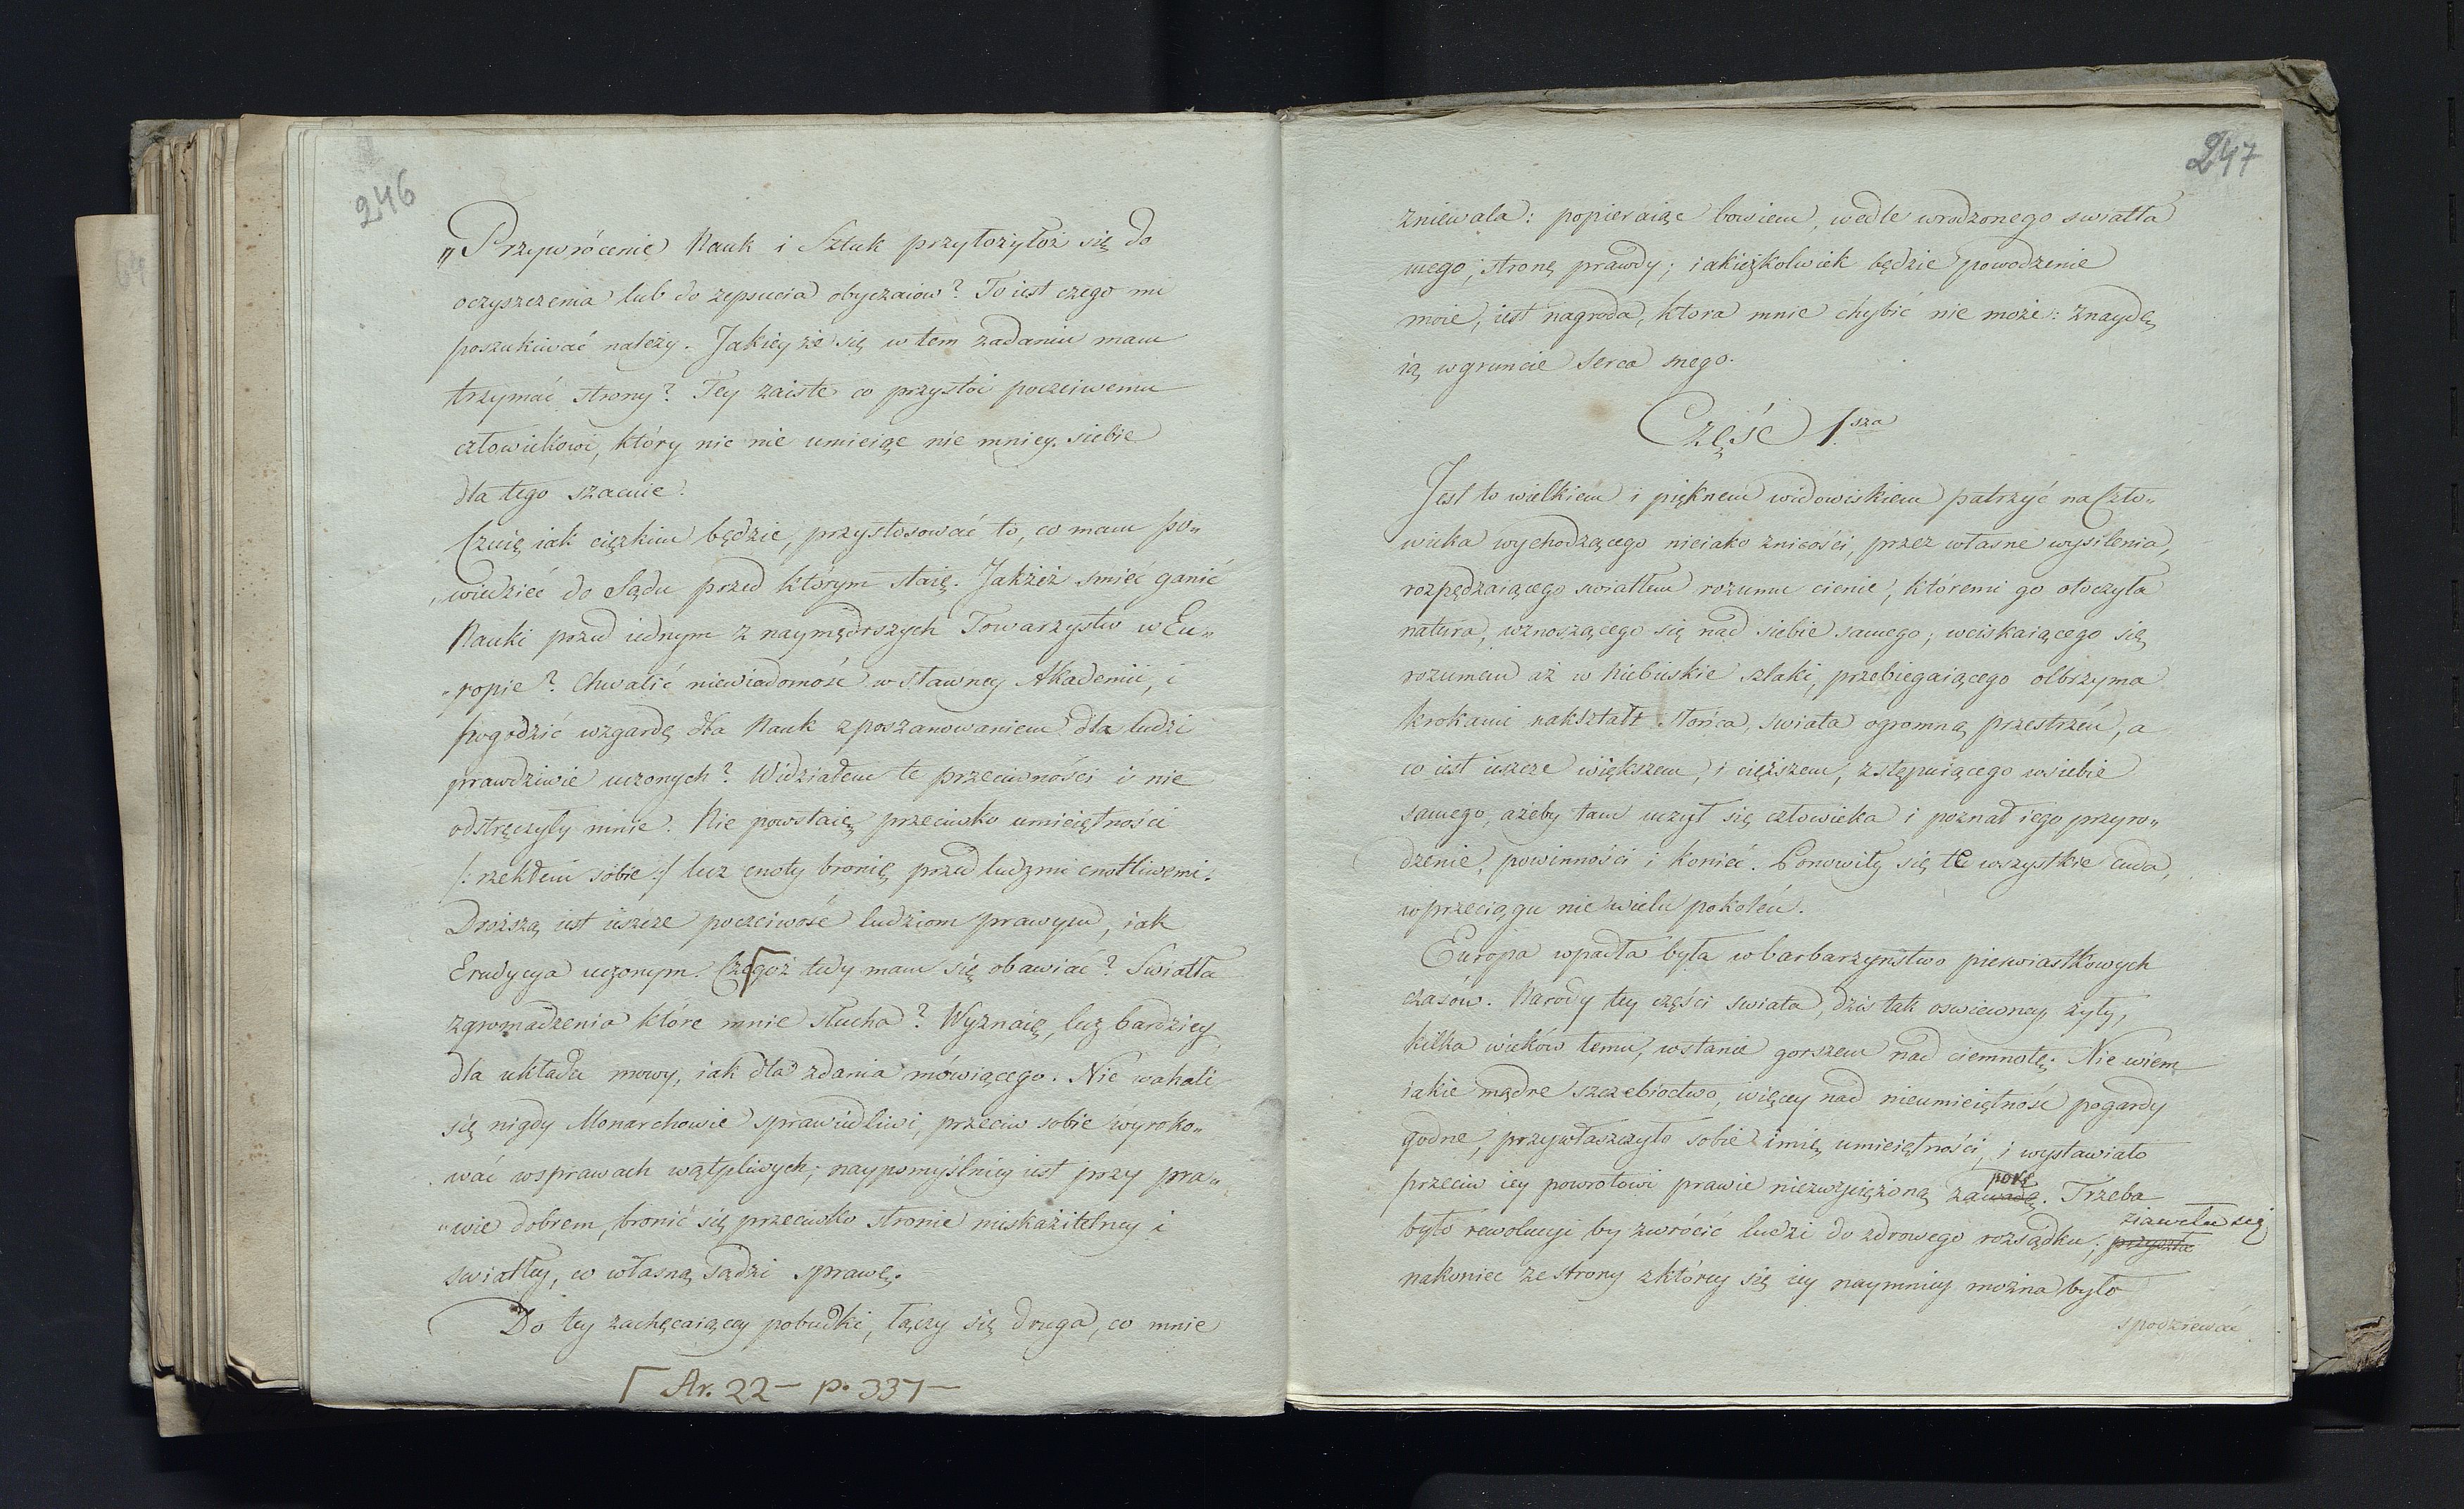 246
„Przywrócenie Nauk i Sztuk przyłożyłoż się do
oczyszczenia lub do zepsucia obyczaiow? To iest czego mi
poszukiwać należy. Jakieyże się w tem zadaniu mam
trzymać strony? Tey zaiste co przystoi poczciwemu
człowiekowi, który nic nie umieiąc nie mniey siebie
dla tego szacuie.
Czuię iak ciężkiem będzie, przystosować to, co mam po„
„wiedzieć do Sądu przed którym staię. Jakżeż smieć ganić
Nauki przed iednym z naymędrszych Towarzystw w Eu„
„ropie? Chwalić niewiadomość w sławney Akademii, i
pogodzić wzgardę dla Nauk z poszanowaniem dla ludzi
prawdziwie uczonych? Widziałem te przeciwności i nie
odstręczyły mnie. Nie powstaię przeciwko umieiętności
/: rzekłem sobie :/ lecz cnoty bronię przed ludzmi cnotliwemi.
Droższą iest ieszcze poczciwość ludziom prawym, iak
Erudycya uczonym. Czegoż tedy mam się obawiać? Swiatła
zgromadzenia które mnie słucha? Wyznaię, lecz bardziey
dla układu mowy, iak dla zdania mówiącego. Nie wahali
się nigdy Monarchowie sprawiedliwi, przeciw sobie wyroko„
wać w sprawach wątpliwych; naypomyślniey iest przy pra„
„wie dobrem, bronić się przeciwko stronie nieskazitelney i
swiatłey, co własną sądzi sprawę.
Do tey zachęcaiącey pobudki, łączy się druga, co mnie
Ar. 22 – p. 337 –
247
zniewala: popieraiąc bowiem, wedle wrodzonego swiatła
mego, stronę prawdy; iakieżkolwiek będzie powodzenie
moie, iest nagroda, ktora mnie chybić nie może: znaydę
ią w gruncie Serca mego.
Część 1sza
Jest to wielkiem i pięknem widowiskiem patrzyć na Czło„
wieka wychodzącego nieiako z nicości, przez własne wysilenia,
rozpędzaiącego swiatłem rozumu cienie, któremi go otoczyła
natura, wznoszącego się nad siebie samego; wciskaiącego się
rozumem aż w Niebieskie szlaki, przebiegaiącego olbrzyma
krokami nakształt słońca, swiata ogromną przestrzeń, a
co iest ieszcze większem, i cięższem, zstępuiącego w siebie
samego, ażeby tam uczył się człowieka i poznał iego przyro„
dzenie, powinności i koniec. Ponowiły się te wszystkie cuda,
w przeciągu nie wielu pokoleń.
Europa wpadła była w barbarzyństwo pierwiastkowych
czasów. Narody tey części swiata, dzis tak oswieconey żyły,
kilka wieków temu, w stanie gorszem nad ciemnotę. Nie wiem
iakie mądre szczebioctwo, więcey nad nieumieiętność pogardy
godne, przywłaszczyło sobie imię umieiętności, i wystawiało
przeciw iey powrotowi prawie niezwyciężoną zawadę porę. Trzeba
było rewolucyi by zwrócić ludzi do zdrowego rozsądku; przyszła ziawiła się
nakoniec ze strony z którey się iey naymniey można było
spodziewać